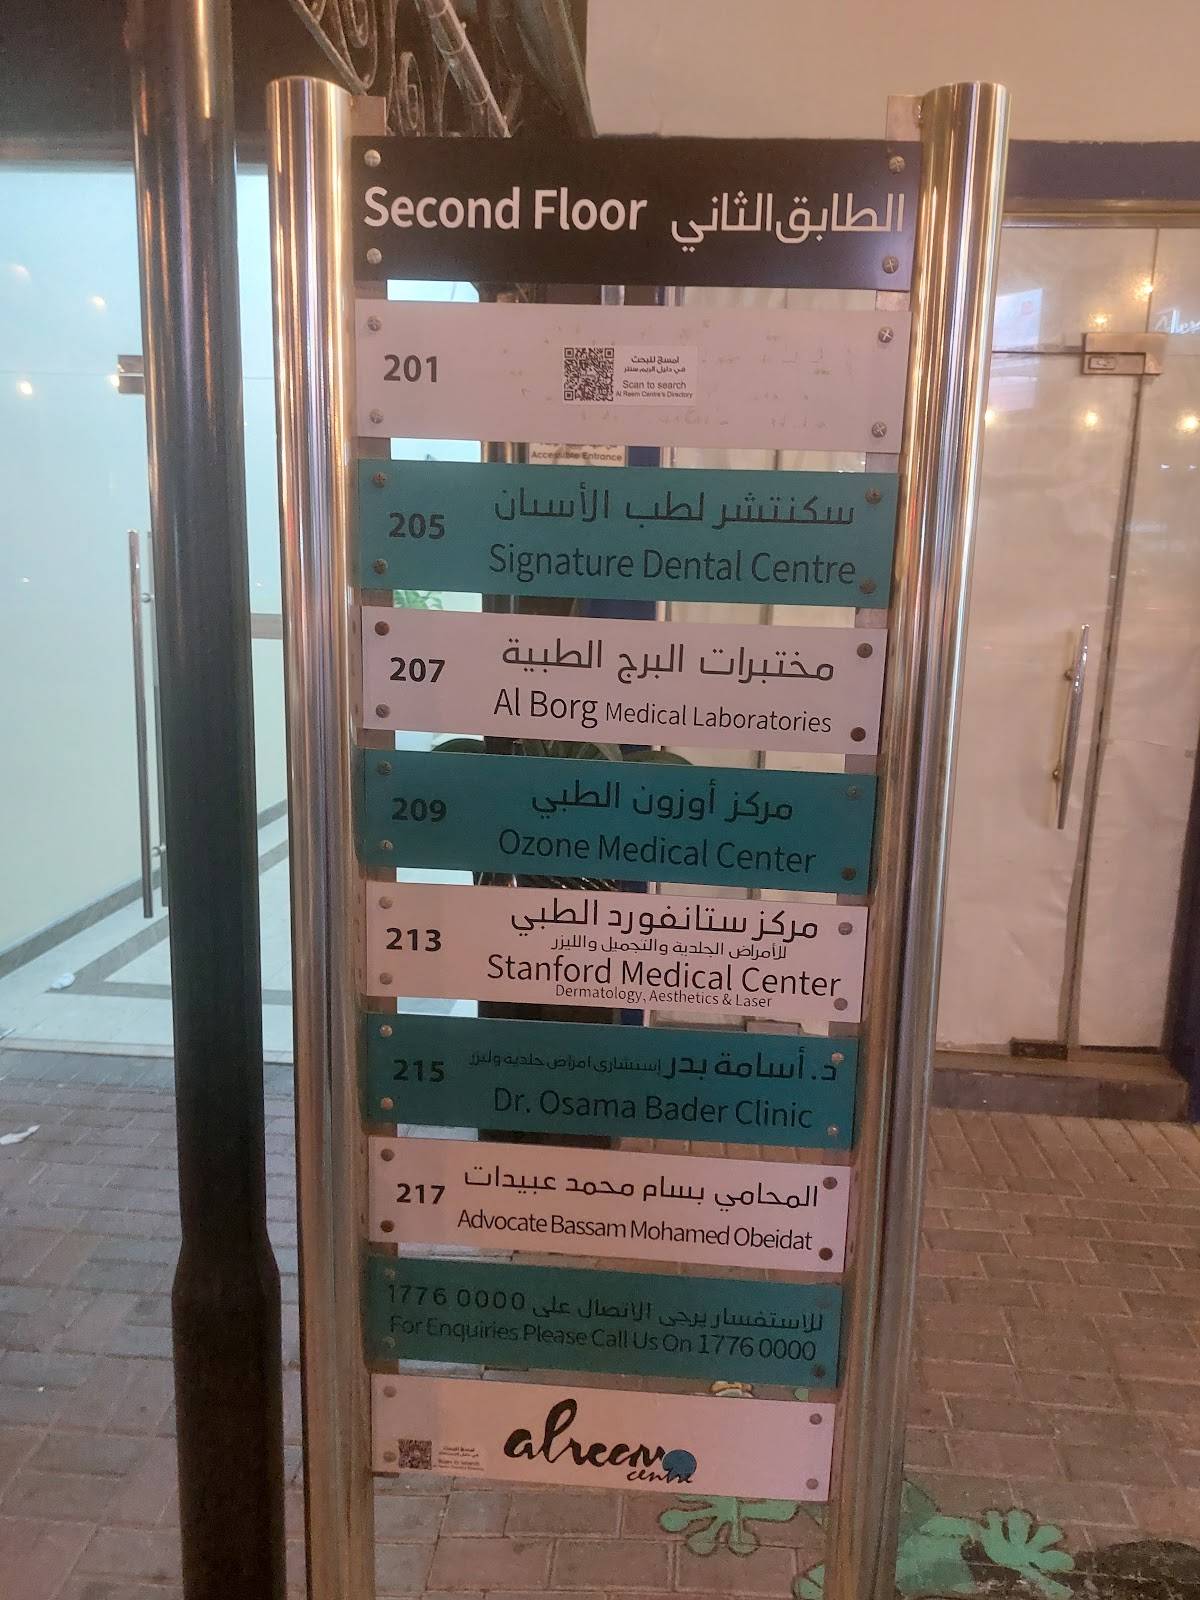 Second Floor الطابق الثاني
201
امسح للبحث
في دليل الريم سنتر
Scan to search
Al Reem Centre's Directory
Accessible Entrance
205
سكنتشر لطب الأسنان
Signature Dental Centre
207
مختبرات البرج الطبية
Al Borg Medical Laboratories
209
مركز أوزون الطبي
Ozone Medical Center
213
مركز ستانفورد الطبي
للأمراض الجلدية والتجميل والليزر
Stanford Medical Center
Dermatology, Aesthetics & Laser
215
د. أسامة بدر إستشاري امراض جلدية وليزر
Dr. Osama Bader Clinic
217
المحامي بسام محمد عبيدات
Advocate Bassam Mohamed Obeidat
للاستفسار يرجى الاتصال على 0000 1776
For Enquiries Please Call Us On 1776 0000
امسح للبحث
Scan to search
alreem
centre